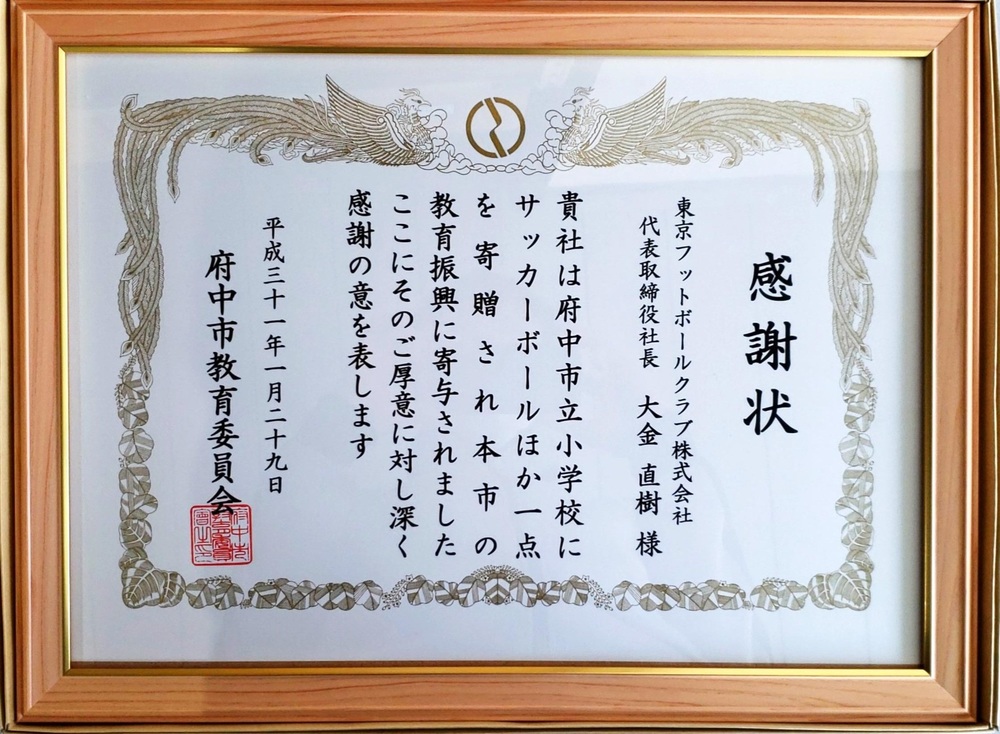 感謝状
東京フットボールクラブ株式会社
代表取締役社長 大金 直樹 様
貴社は府中市立小学校に
サッカーボールほか一点
を寄贈され本市の
教育振興に寄与されました
ここにそのご厚意に対し深く
感謝の意を表します
平成三十一年一月二十九日
府中市教育委員会